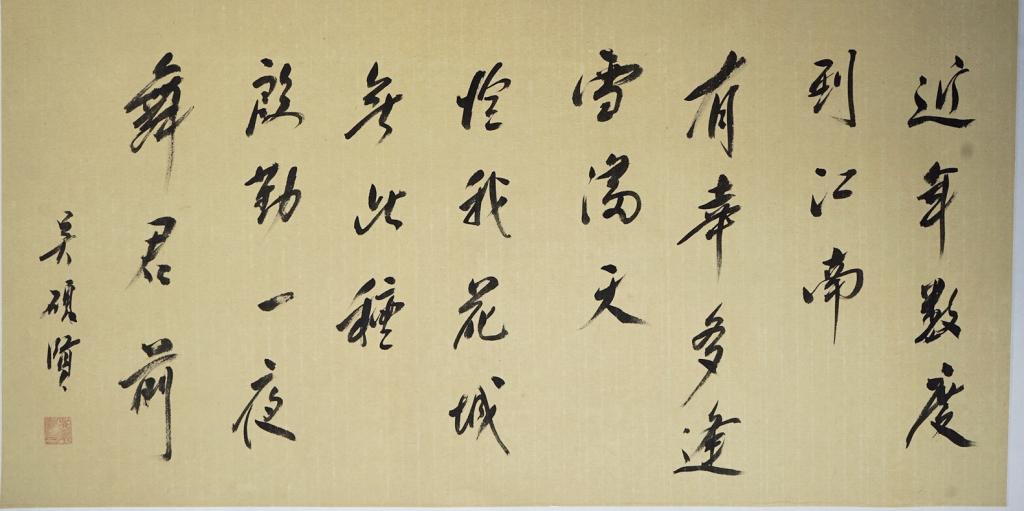 近年数度
到江南
有幸多逢
雪满天
怜我花城
无此种
殷勤一夜
舞君前
吴硕贤